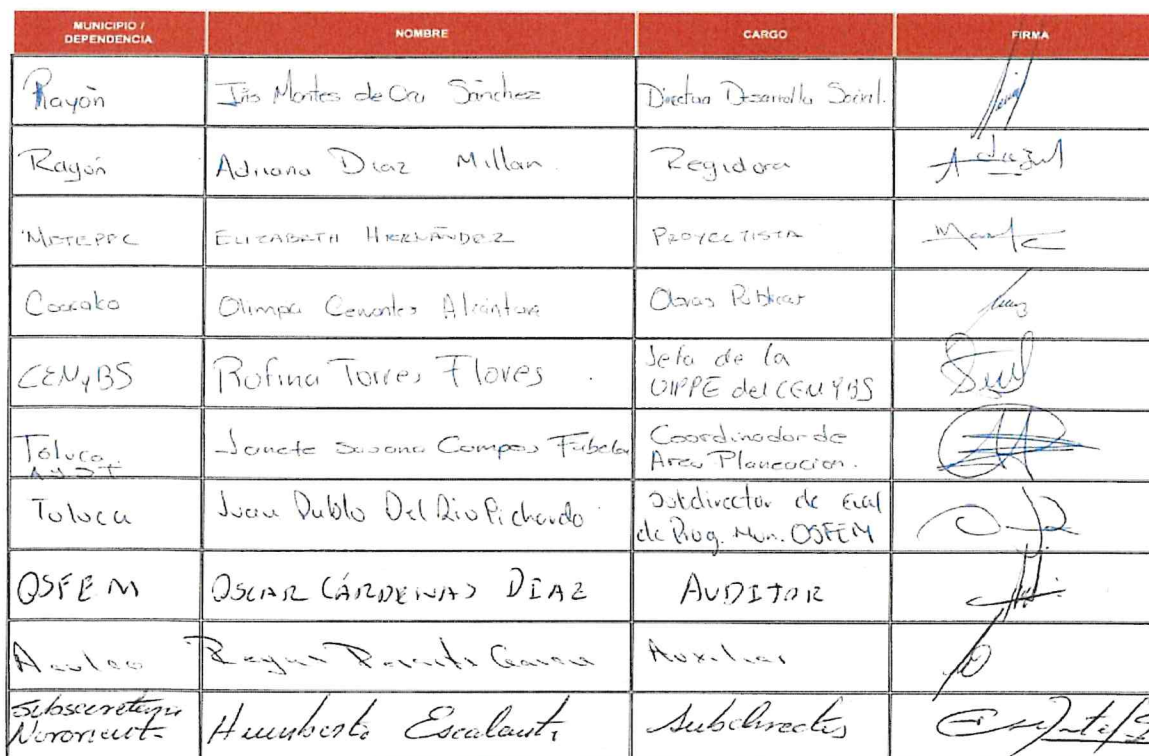 MUNICIPIO / DEPENDENCIA NOMBRE CARGO FIRMA
Rayón Iris Montes de Oca Sánchez Directora Desarrollo Social.
Rayón Adriana Diaz Millan. Regidora
METEPEC ELIZABETH HERNÁNDEZ PROYECTISTA
Olimpa Cervantes Alcántara Obras Públicas
CEMyBS Rufina Torres Flores. Jefa de la UIPPE del CEMYBS
Toluca Janete Susana Campos Fabela Coordinador de Area Planeacion.
Toluca Juan Pablo Del Rio Pichardo Subdirector de Eval de Prog. Mun. OSFEM
OSFEM OSCAR CÁRDENAS DIAZ AUDITOR
Auxiliar
Subsecretaria Humberto Escalante Subdirector